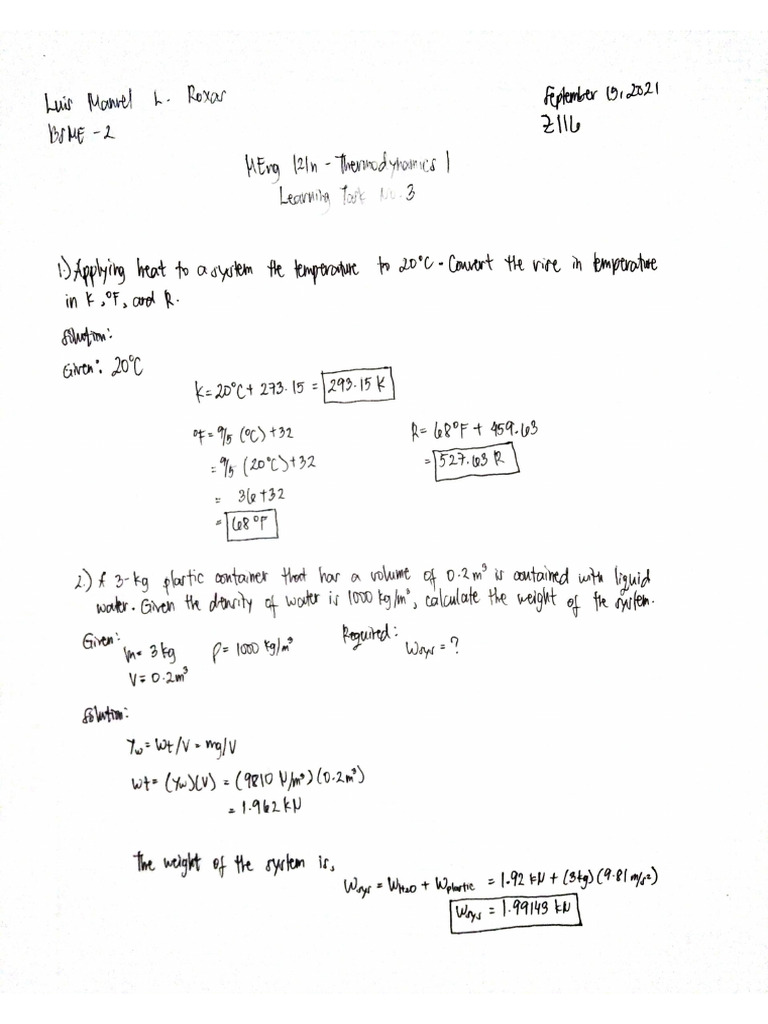 Luis Manuel L. Roxas
September 15, 2021
BSME - 2
Z116
MEng 121n - Thermodynamics 1
Learning Task No. 3
1.) Applying heat to a system the temperature to 20°C - Convert the rise in temperature
in K, °F, and R.
Solution:
Given: 20°C
K = 20°C + 273.15 = 293.15 K
°F = 9/5 (°C) + 32
R = 68°F + 459.63
= 9/5 (20°C) + 32
= 527.63 R
= 36 + 32
= 68°F
2.) A 3-kg plastic container that has a volume of 0.2 m³ is contained with liquid
water. Given the density of water is 1000 kg/m³, calculate the weight of the system.
Given:
Required:
m = 3 kg
ρ = 1000 kg/m³
Wsys = ?
V = 0.2 m³
Solution:
γw = Wt/V = mg/V
Wt = (γw)(V) = (9810 N/m³)(0.2 m³)
= 1.962 kN
The weight of the system is,
Wsys = WH2O + Wplastic = 1.92 kN + (3kg)(9.81 m/s²)
Wsys = 1.99143 kN